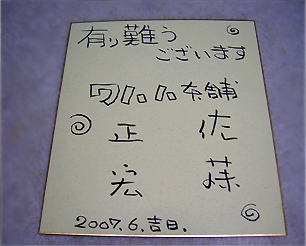 有り難う
ございます
ワハハ本舗
佐藤
正宏
2007.6.吉日.